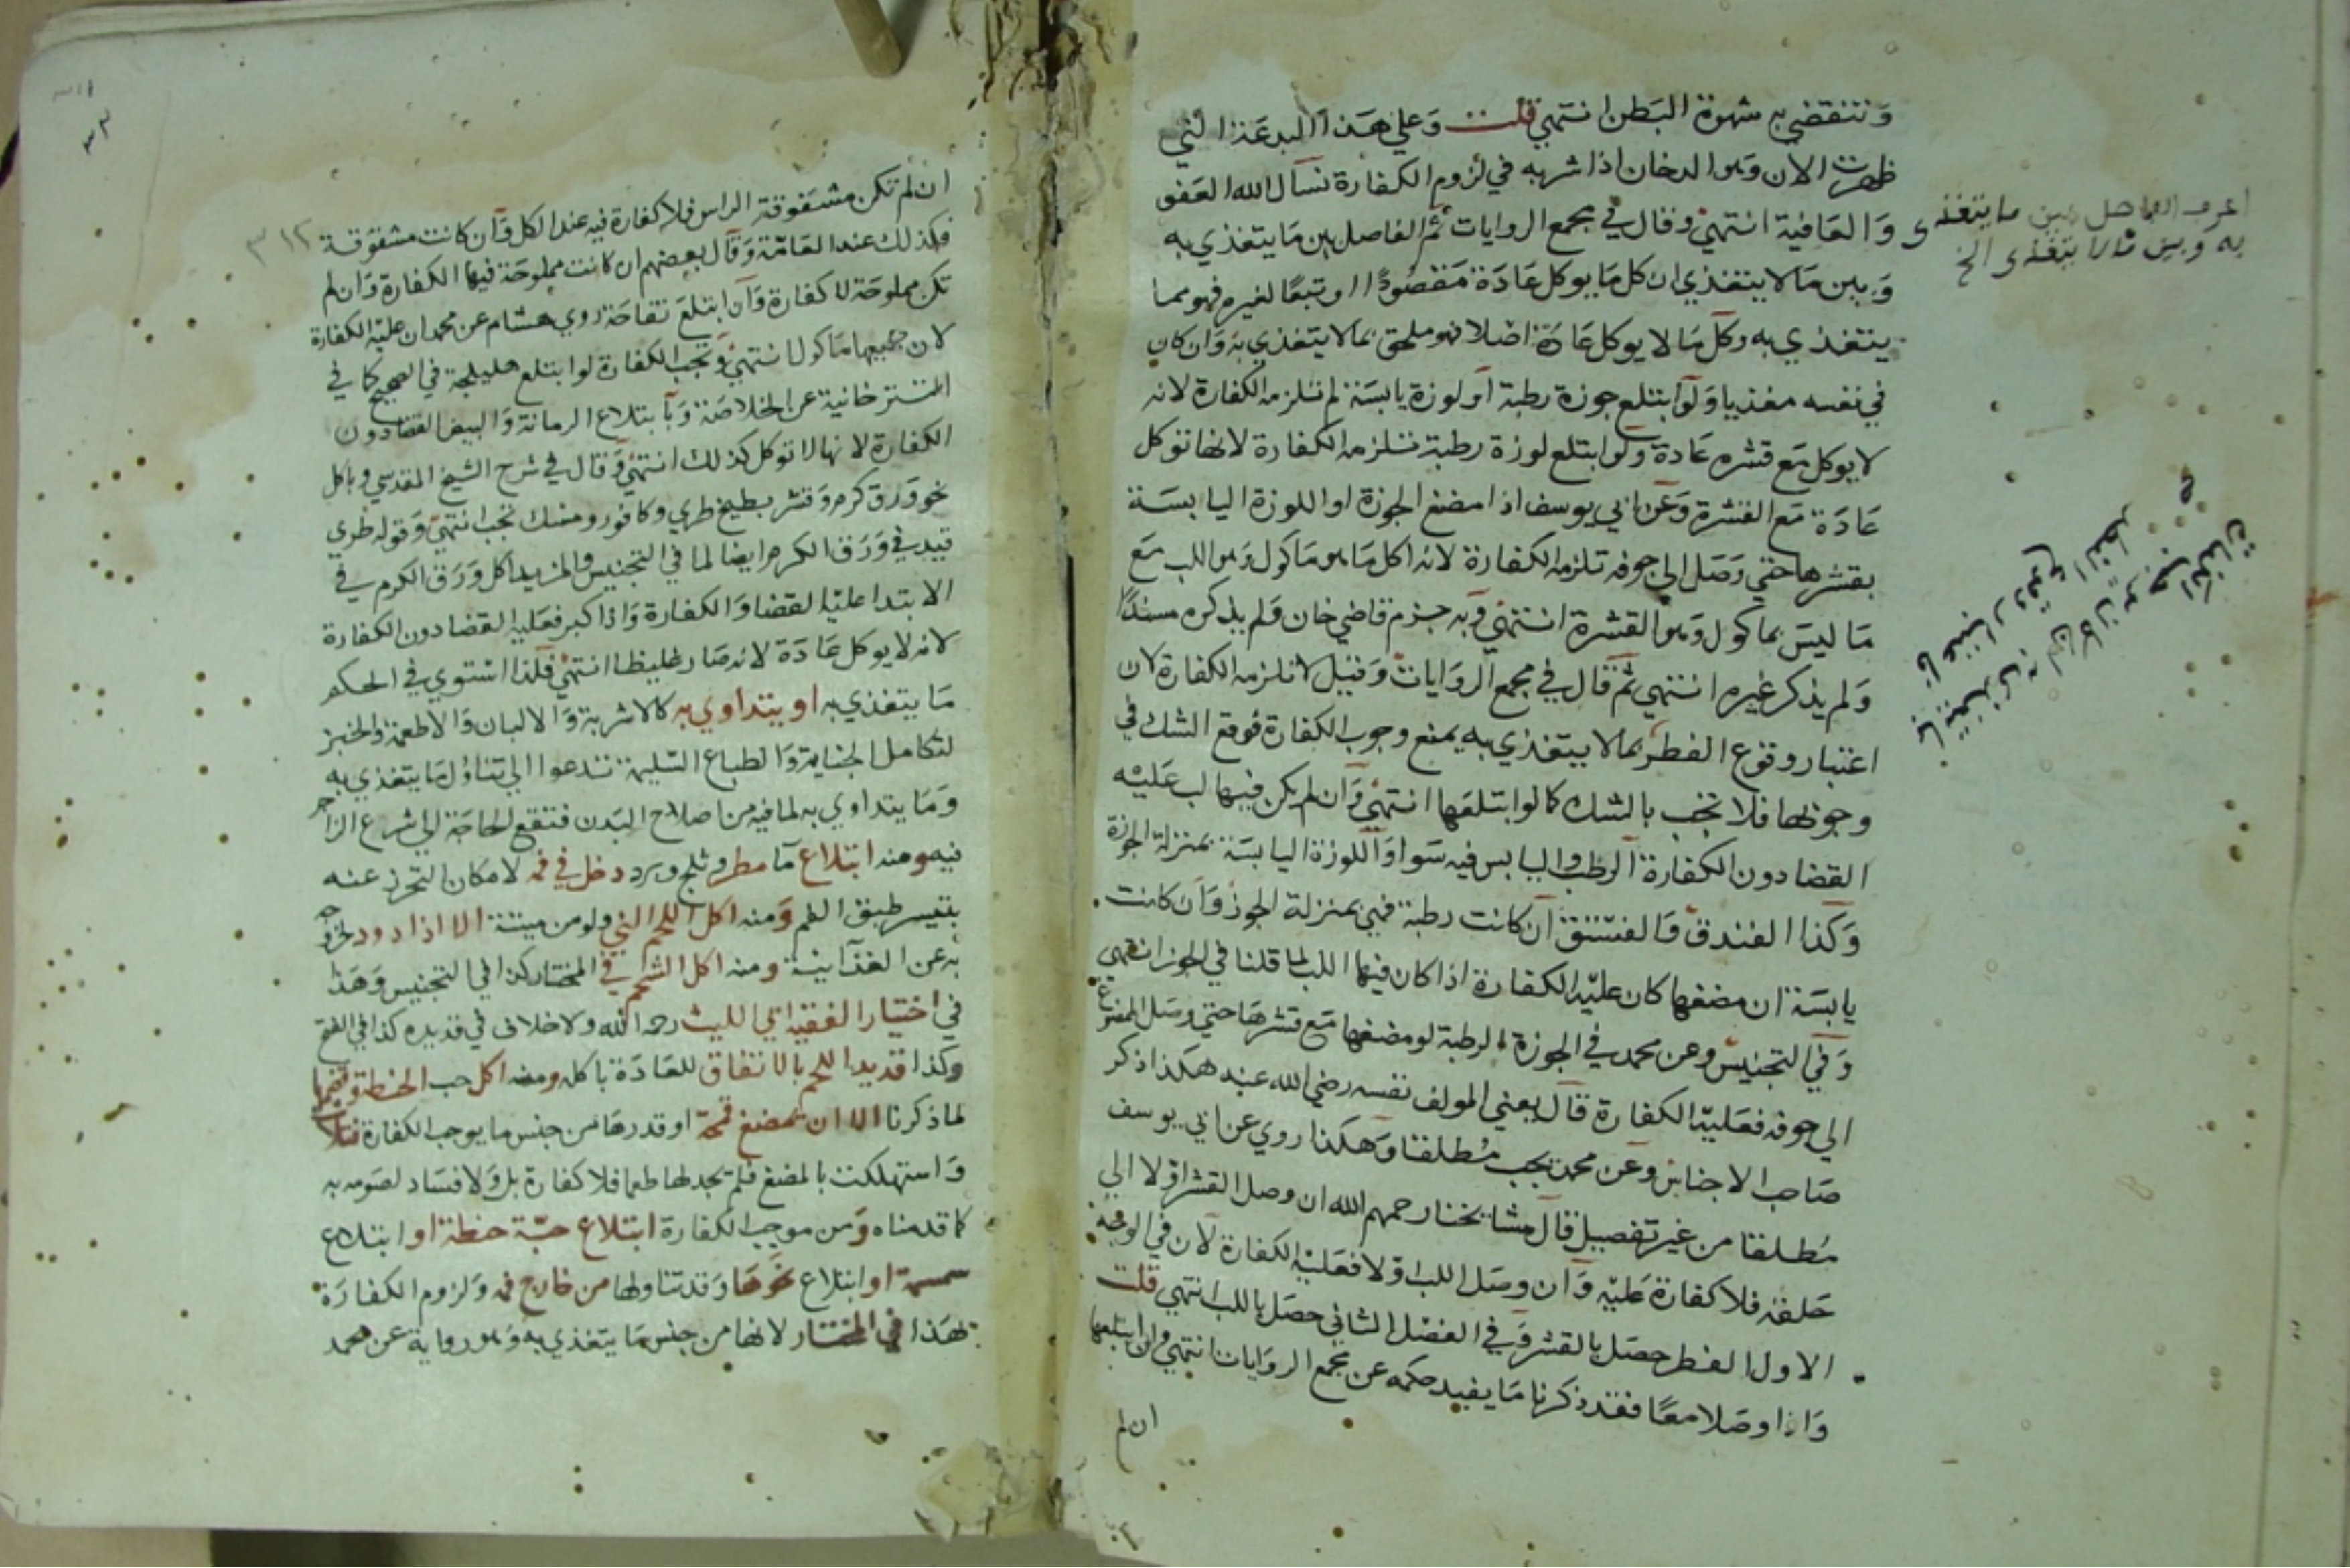 وتنقضي به شهوة البطن انتهي قلت وعلي هذا البدعة التي
ظهرت الان وهو الدخان اذا شربه في لزوم الكفارة نسأل الله العفو
والعافية انتهي وقال في مجمع الروايات ثم الفاصل بين ما يتغذي به
وبين ما لا يتغذي ان كل ما يوكل عادة مقصودًا او تبعًا لغيره فهو مما
يتغذي به وكل ما لا يوكل عادة اصلا فهو ملحق بما لا يتغذي به وان كان
في نفسه مغذيا ولو ابتلع جوزة رطبة او لوزة يابسة لم تلزمه الكفارة لانه
لا يوكل مع قشره عادة ولو ابتلع لوزة رطبة تلزمه الكفارة لانها توكل
عادة مع القشرة وعن ابي يوسف اذا مضغ الجوزة او اللوزة اليابسة
بقشرها حتي وصل الي جوفه تلزمه الكفارة لانه اكل ما هو ماكول وهو اللب مع
ما ليس بماكول وهو القشرة انتهي وبه جزم قاضي خان ولم يذكره مسندًا
ولم يذكر غيره انتهي ثم قال في مجمع الروايات وقيل لا تلزمه الكفارة لان
اعتبار وقوع الفطر بما لا يتغذي به يمنع وجوب الكفارة فوقع الشك في
وجوبها فلا تجب بالشك كما لو ابتلعها انتهي وان لم يكن فيها لب عليه
القضا دون الكفارة الرطب واليابس فيه سوا واللوزة اليابسة بمنزلة الجوزة
وكذا الفندق والفستق ان كانت رطبة فهي بمنزلة الجوز وان كانت
يابسة ان مضغها كان عليه الكفارة اذا كان فيها اللب لما قلنا في الجوز انتهي
وفي التجنيس وعن محمد في الجوزة الرطبة لو مضغها مع قشرها حتي وصل الممضوغ
الي جوفه فعليه الكفارة قال يعني المولف نفسه رضي الله عنه هكذا ذكر
صاحب الاجناس وعن محمد يجب مطلقا وهكذا روي عن ابي يوسف
مطلقا من غير تفصيل قال مشايخنا رحمهم الله ان وصل القشر اولا الي
حلقه فلا كفارة عليه وان وصل اللب اولا فعليه الكفارة لان في الوجه
الاول الفطر حصل بالقشر وفي الفصل الثاني حصل باللب انتهي قلت
واذا وصلا معًا فقد ذكرنا ما يفيد حكمه عن مجمع الروايات انتهي وان ابتلعها
ان لم
اعرف الفاصل بين ما يتغذى
به وبين ما لا يتغذى الخ
٣١٢
ان لم تكن مشقوقة الراس فلا كفارة فيه عند الكل وان كانت مشقوقة
فكذلك عند العامة وقال بعضهم ان كانت مملوحة فيها الكفارة وان لم
تكن مملوحة لا كفارة وان ابتلع تفاحة روي هشام عن محمد ان عليه الكفارة
لان جميعها ماكول انتهي وتجب الكفارة لو ابتلع هليلجة في الصحيح كما في
التترخانية عن الخلاصة وبابتلاع الرمانة والبيض القضا دون
الكفارة لانها لا توكل كذلك انتهي وقال في شرح الشيخ المقدسي وباكل
نحو ورق كرم وقشر بطيخ طري وكافور ومسك تجب انتهي وقوله طري
قيد في ورق الكرم ايضا لما في التجنيس والمزيد اكل ورق الكرم في
الابتدا عليه القضا والكفارة واذا كبر فعليه القضا دون الكفارة
لانه لا يوكل عادة لانه صار غليظا انتهي فلذا استوي في الحكم
ما يتغذي به او يتداوي به كالاشربة والالبان والاطعمة والخبز
لتكامل الجناية والطباع السليمة تدعوا الي تناول ما يتغذي به
وما يتداوي به لما فيه من اصلاح البدن فتقع الحاجة الي شرع الزاجر
فيه ومنه ابتلاع ما مطر وثلج وبرد دخل في فمه لامكان التحرز عنه
بتيسر طبق الفم ومنه اكل اللحم الني ولو من ميتة الا اذا دود لخروجه
به عن الغذائية ومنه اكل الشحم في المختار كذا في التجنيس وهذا
في اختيار الفقيه ابي الليث رحمه الله ولا خلاف في قديده كذا في الفتح
وكذا قديد اللحم بالاتفاق للعادة باكله ومنه اكل حب الحنطة وقضمها
لما ذكرنا الا ان يمضغ قمحة او قدرها من جنس ما يوجب الكفارة فتلاشت
واستهلكت بالمضغ فلم يجد لها طعما فلا كفارة بل ولا فساد لصومه به
كما قدمناه ومن موجب الكفارة ابتلاع حبة حنطة او ابتلاع
سمسمة او ابتلاع نحوها وقد تناولها من خارج فمه ولزوم الكفارة
بهذا في المختار لانها من جنس ما يتغذي به وهو رواية عن محمد